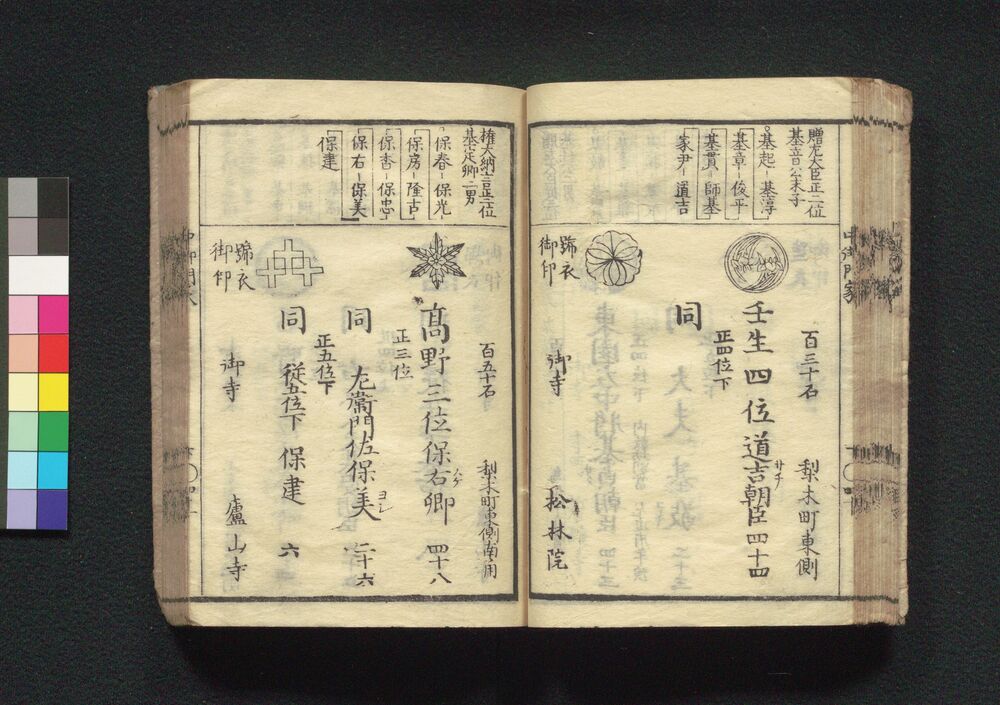 贈左大臣正二位
基音公末子
基起-基淳
基章-俊平
基貫-師基
家尹-道吉
百三十石
梨木町東側
壬生四位道吉朝臣四十四
サチ
正四位下
同
蹄衣
御印
御寺
松林院
権大納言正二位
基定卿二男
保春-保光
保房-隆古
保香-保忠
保右-保美
保建
百五十石
梨木町東側南角
髙野三位保右卿
四十八
正三位
同
左衛門佐保美
ヨシ
二十六
正五位下
同
従五位下
保建
六
蹄衣
御印
御寺
盧山寺